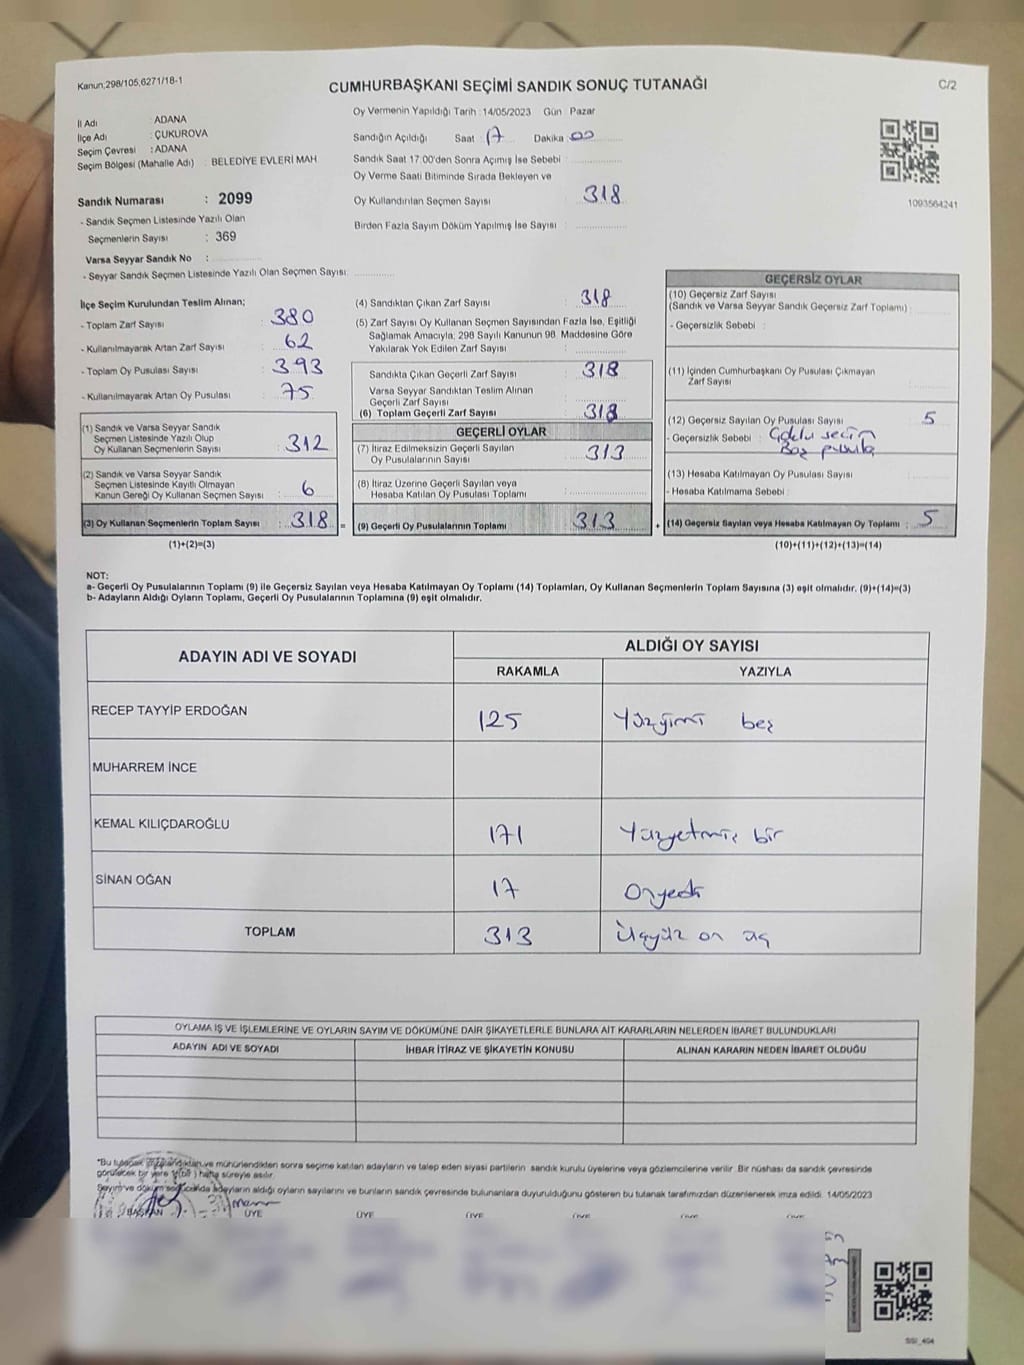 Kanun,298/105,6271/18-1
CUMHURBAŞKANI SEÇİMİ SANDIK SONUÇ TUTANAĞI
C/2
İl Adı : ADANA
İlçe Adı : ÇUKUROVA
Seçim Çevresi : ADANA
Seçim Bölgesi (Mahalle Adı) : BELEDİYE EVLERİ MAH
Sandık Numarası : 2099
- Sandık Seçmen Listesinde Yazılı Olan
Seçmenlerin Sayısı : 369
Varsa Seyyar Sandık No :
- Seyyar Sandık Seçmen Listesinde Yazılı Olan Seçmen Sayısı:
Oy Vermenin Yapıldığı Tarih : 14/05/2023 Gün : Pazar
Sandığın Açıldığı Saat : 17 Dakika : 00
Sandık Saat 17.00'den Sonra Açımış İse Sebebi :
Oy Verme Saati Bitiminde Sırada Bekleyen ve
Oy Kullandırılan Seçmen Sayısı : 318
Birden Fazla Sayım Döküm Yapılmış İse Sayısı :
1093564241
İlçe Seçim Kurulundan Teslim Alınan;
- Toplam Zarf Sayısı : 380
- Kullanılmayarak Artan Zarf Sayısı : 62
- Toplam Oy Pusulası Sayısı : 393
- Kullanılmayarak Artan Oy Pusulası : 75
(1) Sandık ve Varsa Seyyar Sandık
Seçmen Listesinde Yazılı Olup
Oy Kullanan Seçmenlerin Sayısı : 312
(2) Sandık ve Varsa Seyyar Sandık
Seçmen Listesinde Kayıtlı Olmayan
Kanun Gereği Oy Kullanan Seçmen Sayısı : 6
(3) Oy Kullanan Seçmenlerin Toplam Sayısı : 318 =
(1)+(2)=(3)
(4) Sandıktan Çıkan Zarf Sayısı : 318
(5) Zarf Sayısı Oy Kullanan Seçmen Sayısından Fazla İse, Eşitliği
Sağlamak Amacıyla, 298 Sayılı Kanunun 98. Maddesine Göre
Yakılarak Yok Edilen Zarf Sayısı :
Sandıkta Çıkan Geçerli Zarf Sayısı : 318
Varsa Seyyar Sandıktan Teslim Alınan
Geçerli Zarf Sayısı :
(6) Toplam Geçerli Zarf Sayısı : 318
GEÇERLİ OYLAR
(7) İtiraz Edilmeksizin Geçerli Sayılan
Oy Pusulalarının Sayısı : 313
(8) İtiraz Üzerine Geçerli Sayılan veya
Hesaba Katılan Oy Pusulası Toplamı :
(9) Geçerli Oy Pusulalarının Toplamı : 313 +
GEÇERSİZ OYLAR
(10) Geçersiz Zarf Sayısı
(Sandık ve Varsa Seyyar Sandık Geçersiz Zarf Toplamı) :
- Geçersizlik Sebebi :
(11) İçinden Cumhurbaşkanı Oy Pusulası Çıkmayan
Zarf Sayısı :
(12) Geçersiz Sayılan Oy Pusulası Sayısı : 5
- Geçersizlik Sebebi : Çoklu seçim
Boş pusula
(13) Hesaba Katılmayan Oy Pusulası Sayısı :
- Hesaba Katılmama Sebebi :
(14) Geçersiz Sayılan veya Hesaba Katılmayan Oy Toplamı : 5
(10)+(11)+(12)+(13)=(14)
NOT:
a- Geçerli Oy Pusulalarının Toplamı (9) ile Geçersiz Sayılan veya Hesaba Katılmayan Oy Toplamı (14) Toplamları, Oy Kullanan Seçmenlerin Toplam Sayısına (3) eşit olmalıdır. (9)+(14)=(3)
b- Adayların Aldığı Oyların Toplamı, Geçerli Oy Pusulalarının Toplamına (9) eşit olmalıdır.
ADAYIN ADI VE SOYADI ALDIĞI OY SAYISI
RAKAMLA YAZIYLA
RECEP TAYYİP ERDOĞAN 125 Yüzyirmi beş
MUHARREM İNCE
KEMAL KILIÇDAROĞLU 171 Yüzyetmiş bir
SİNAN OĞAN 17 Onyedi
TOPLAM 313 Üçyüz on üç
OYLAMA İŞ VE İŞLEMLERİNE VE OYLARIN SAYIM VE DÖKÜMÜNE DAİR ŞİKAYETLERLE BUNLARA AİT KARARLARIN NELERDEN İBARET BULUNDUKLARI
ADAYIN ADI VE SOYADI İHBAR İTİRAZ VE ŞİKAYETİN KONUSU ALINAN KARARIN NEDEN İBARET OLDUĞU
*Bu tutanak imzalandıktan ve mühürlendikten sonra seçime katılan adayların ve talep eden siyasi partilerin sandık kurulu üyelerine veya gözlemcilerine verilir. Bir nüshası da sandık çevresinde
görülecek bir yere 1(bir) hafta süreyle asılır.
Sayım ve döküm sonucunda adayların aldığı oyların sayılarını ve bunların sandık çevresinde bulunanlara duyurulduğunu gösteren bu tutanak tarafımızdan düzenlenerek imza edildi. 14/05/2023
BAŞKAN ÜYE ÜYE ÜYE ÜYE ÜYE ÜYE